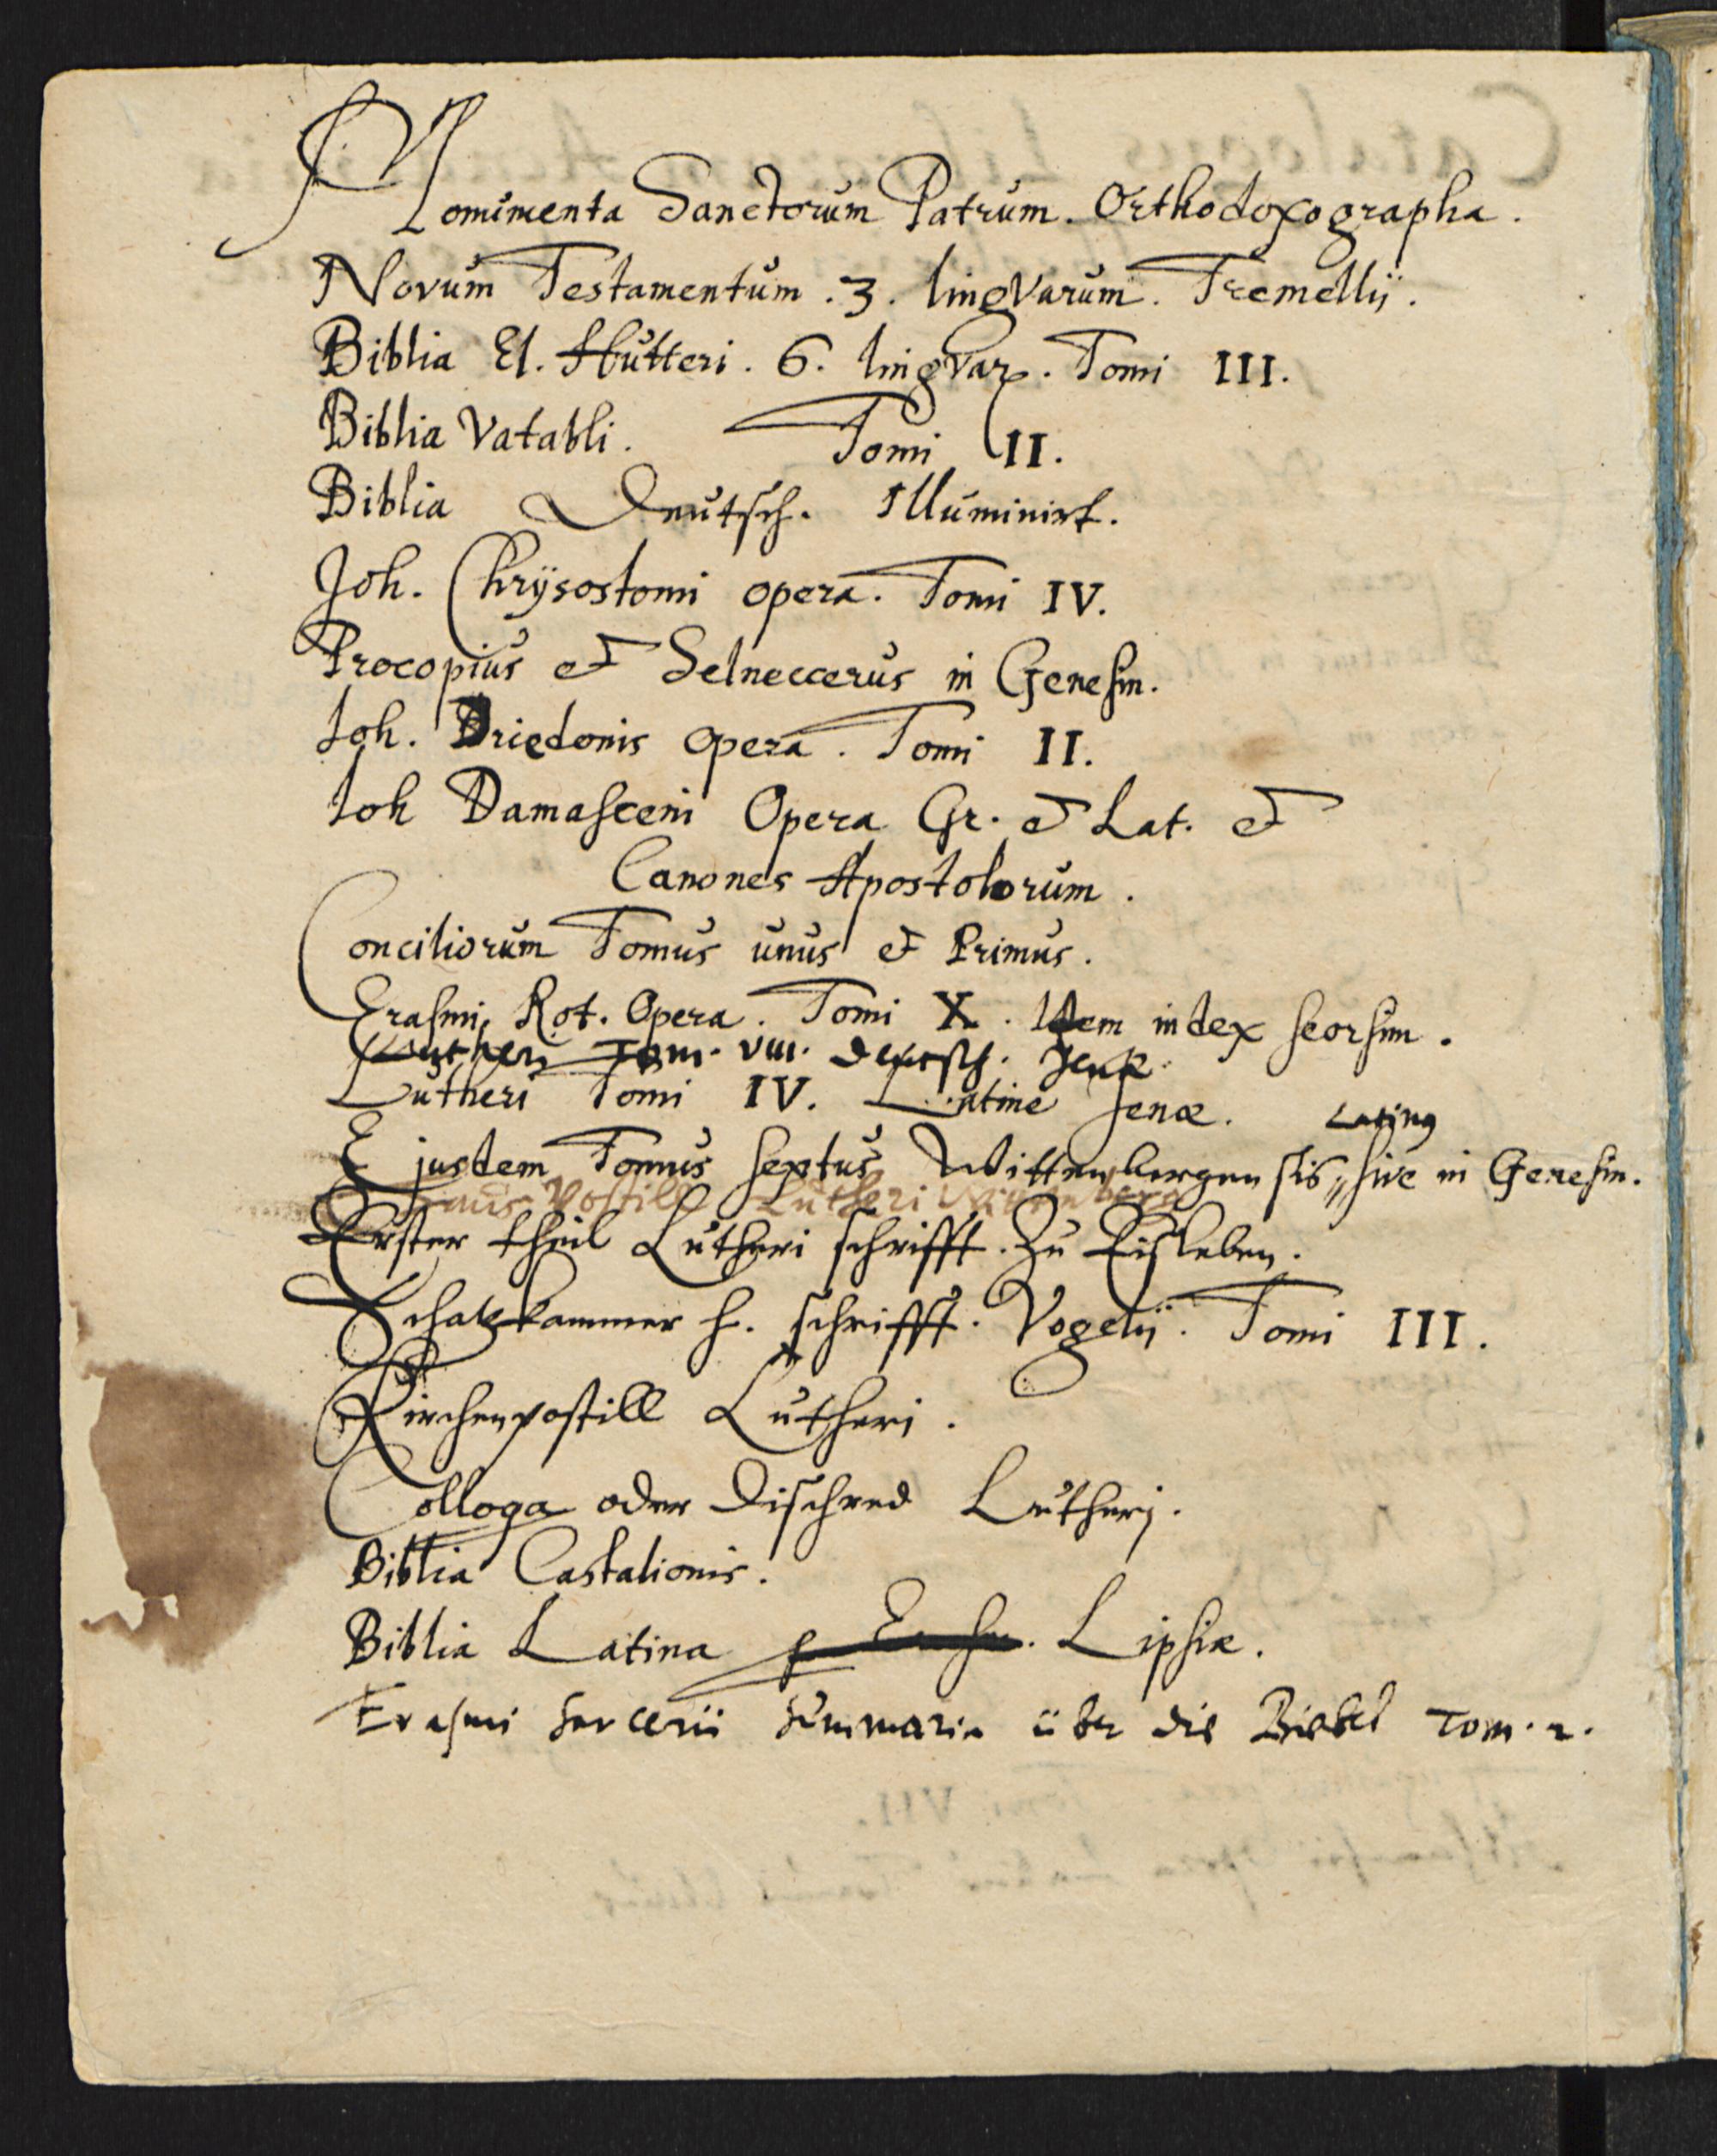 Monimenta Sanctorum Patrum. Orthodoxographa.
Novum Testamentum. 3. lingvarum. Tremellij.
Biblia El. Hutteri. 6. lingvar. Tomi III.
Biblia Vatabli. Tomi II.
Biblia Deutsch. Illuminirt.
Joh. Chrÿsostomi opera. Tomi IV.
Procopius et Selneccerus in Genesin.
Joh. Driedonis opera. Tomi II.
Joh Damasceni Opera Gr. et Lat. et
Canones Apostolorum.
Conciliorum Tomus unus et Primus.
Erasmi Rot. Opera. Tomi X. Item index seorsim.
Lutheri Tom. VIII. Deutsch. Jenæ.
Lutheri Tomi IV. Latine Jenæ.
Latinus
Ejusdem Tomus sextus Wittenbergensis, sive in Genesin.
Haus Postill Lutheri Wittenberg
Erster theil Lutheri schrifft. Zu Eisleben.
Schatzkammer h. schrifft. Vogelij. Tomi III.
Kirchenpostill Lutheri.
Colloqa oder Dischred Lutherj.
Biblia Castalionis.
Biblia Latina Lipsiæ.
Erasmi Sarcerii Summaria über die Biebel Tom. 2.